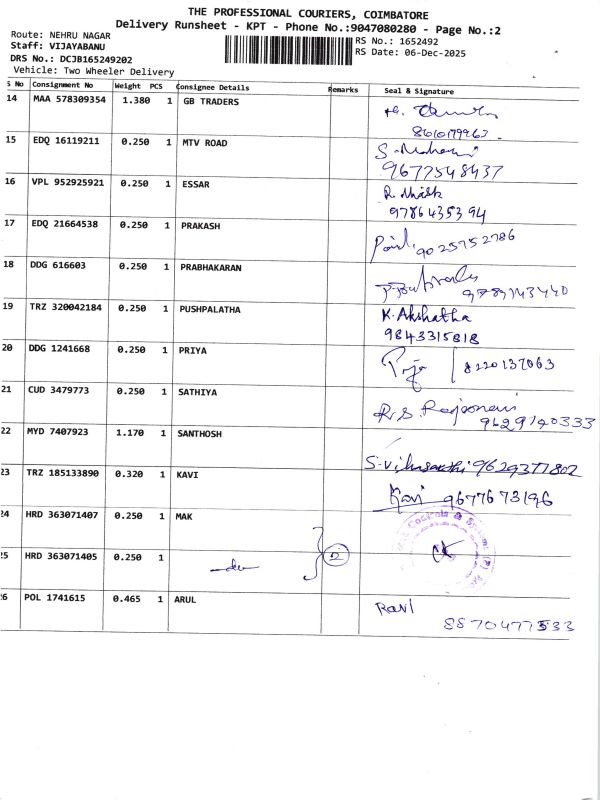 THE PROFESSIONAL COURIERS, COIMBATORE
Delivery Runsheet - KPT - Phone No.:9047080280 - Page No.:2
Route: NEHRU NAGAR
Staff: VIJAYABANU
DRS No.: DCJB165249202
Vehicle: Two Wheeler Delivery
RS No.: 1652492
RS Date: 06-Dec-2025
S No Consignment No Weight PCS Consignee Details Remarks Seal & Signature
14 MAA 578309354 1.380 1 GB TRADERS
8610179963
15 EDQ 16119211 0.250 1 MTV ROAD
9677548437
16 VPL 952925921 0.250 1 ESSAR
9786435394
17 EDQ 21664538 0.250 1 PRAKASH
9025752786
18 DDG 616603 0.250 1 PRABHAKARAN
19 TRZ 320042184 0.250 1 PUSHPALATHA K.Akshatha
9843315818
20 DDG 1241668 0.250 1 PRIYA 8220137063
21 CUD 3479773 0.250 1 SATHIYA
9629140333
22 MYD 7407923 1.170 1 SANTHOSH
9629377802
23 TRZ 185133890 0.320 1 KAVI Kavi 9677673196
24 HRD 363071407 0.250 1 MAK
25 HRD 363071405 0.250 1 2
26 POL 1741615 0.465 1 ARUL Ravi
8870477533